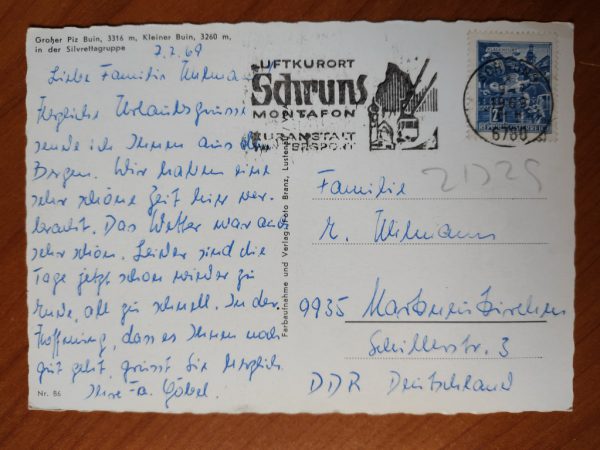 Großer Piz Buin, 3316 m, Kleiner Buin, 3260 m,
in der Silvrettagruppe
7.2.69
Liebe Familie
Herzliche Urlaubsgrüsse
sende ich Ihnen aus den
Bergen. Wir haben eine
sehr schöne Zeit hier ver-
bracht. Das Wetter war auch
sehr schön. Leider sind die
Tage jetzt schon wieder zu
Ende, all zu schnell. In der
Hoffnung, dass es Ihnen noch
gut geht, grüsst Sie herzlich
Ihre Fa. Göbel
Nr. 86
Farbaufnahme und Verlag: Foto Branz, Lustenau
LUFTKURORT
Schruns
MONTAFON
KURANSTALT
WINTERSPORT
REPUBLIK
6780
21325
Familie
9935 Markneukirchen
Schillerstr. 3
DDR Deutschland